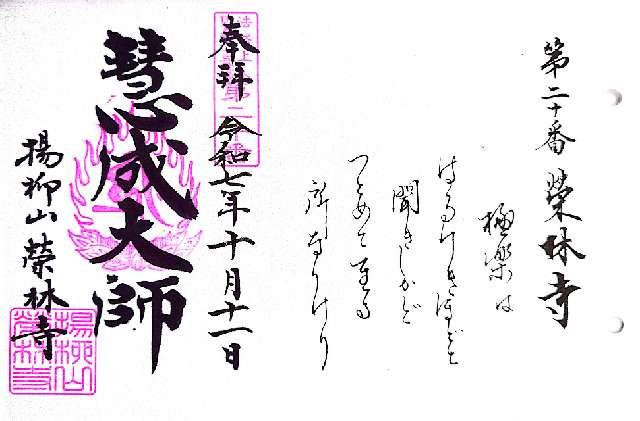 第二十番 榮林寺
極楽は
はるけきほどと
聞きしかど
つとめて至る
所なりけり
奉拝 令和七年十月十一日
慧成大師
楊柳山 榮林寺
楊柳山
榮林寺